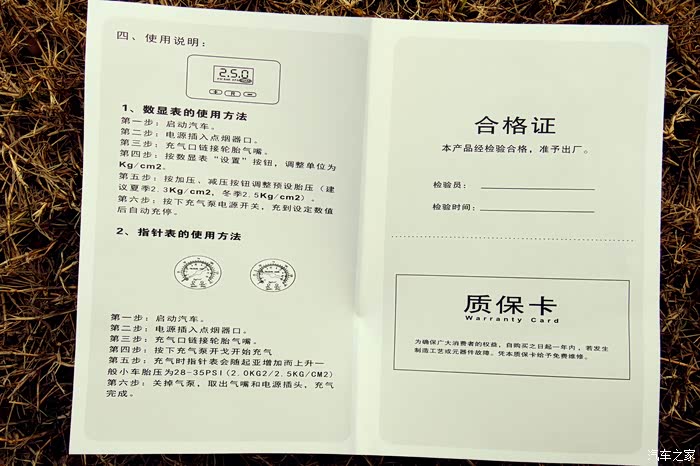 四、使用说明：
2.5.0
1、数显表的使用方法
第一步：启动汽车。
第二步：电源插入点烟器口。
第三步：充气口链接轮胎气嘴。
第四步：按数显表“设置”按钮，调整单位为
Kg/cm2。
第五步：按加压、减压按钮调整预设胎压（建
议夏季2.3Kg/cm2，冬季2.5Kg/cm2）。
第六步：按下充气泵电源开关，充到设定数值
后自动充停。
2、指针表的使用方法
第一步：启动汽车。
第二步：电源插入点烟器口。
第三步：充气口链接轮胎气嘴。
第四步：按下充气泵开戈开始充气
第五步：充气时指针表会随起亚增加而上升一
般小车胎压为28-35PSI(2.0KG2/2.5KG/CM2)
第六步：关掉气泵，取出气嘴和电源插头，充气
完成。
合格证
本产品经检验合格，准予出厂。
检验员：
检验时间：
质保卡
Warranty Card
为确保广大消费者的权益，自购买之日起一年内，若发生
制造工艺或元器件故障。凭本质保卡给予免费维修。
汽车之家